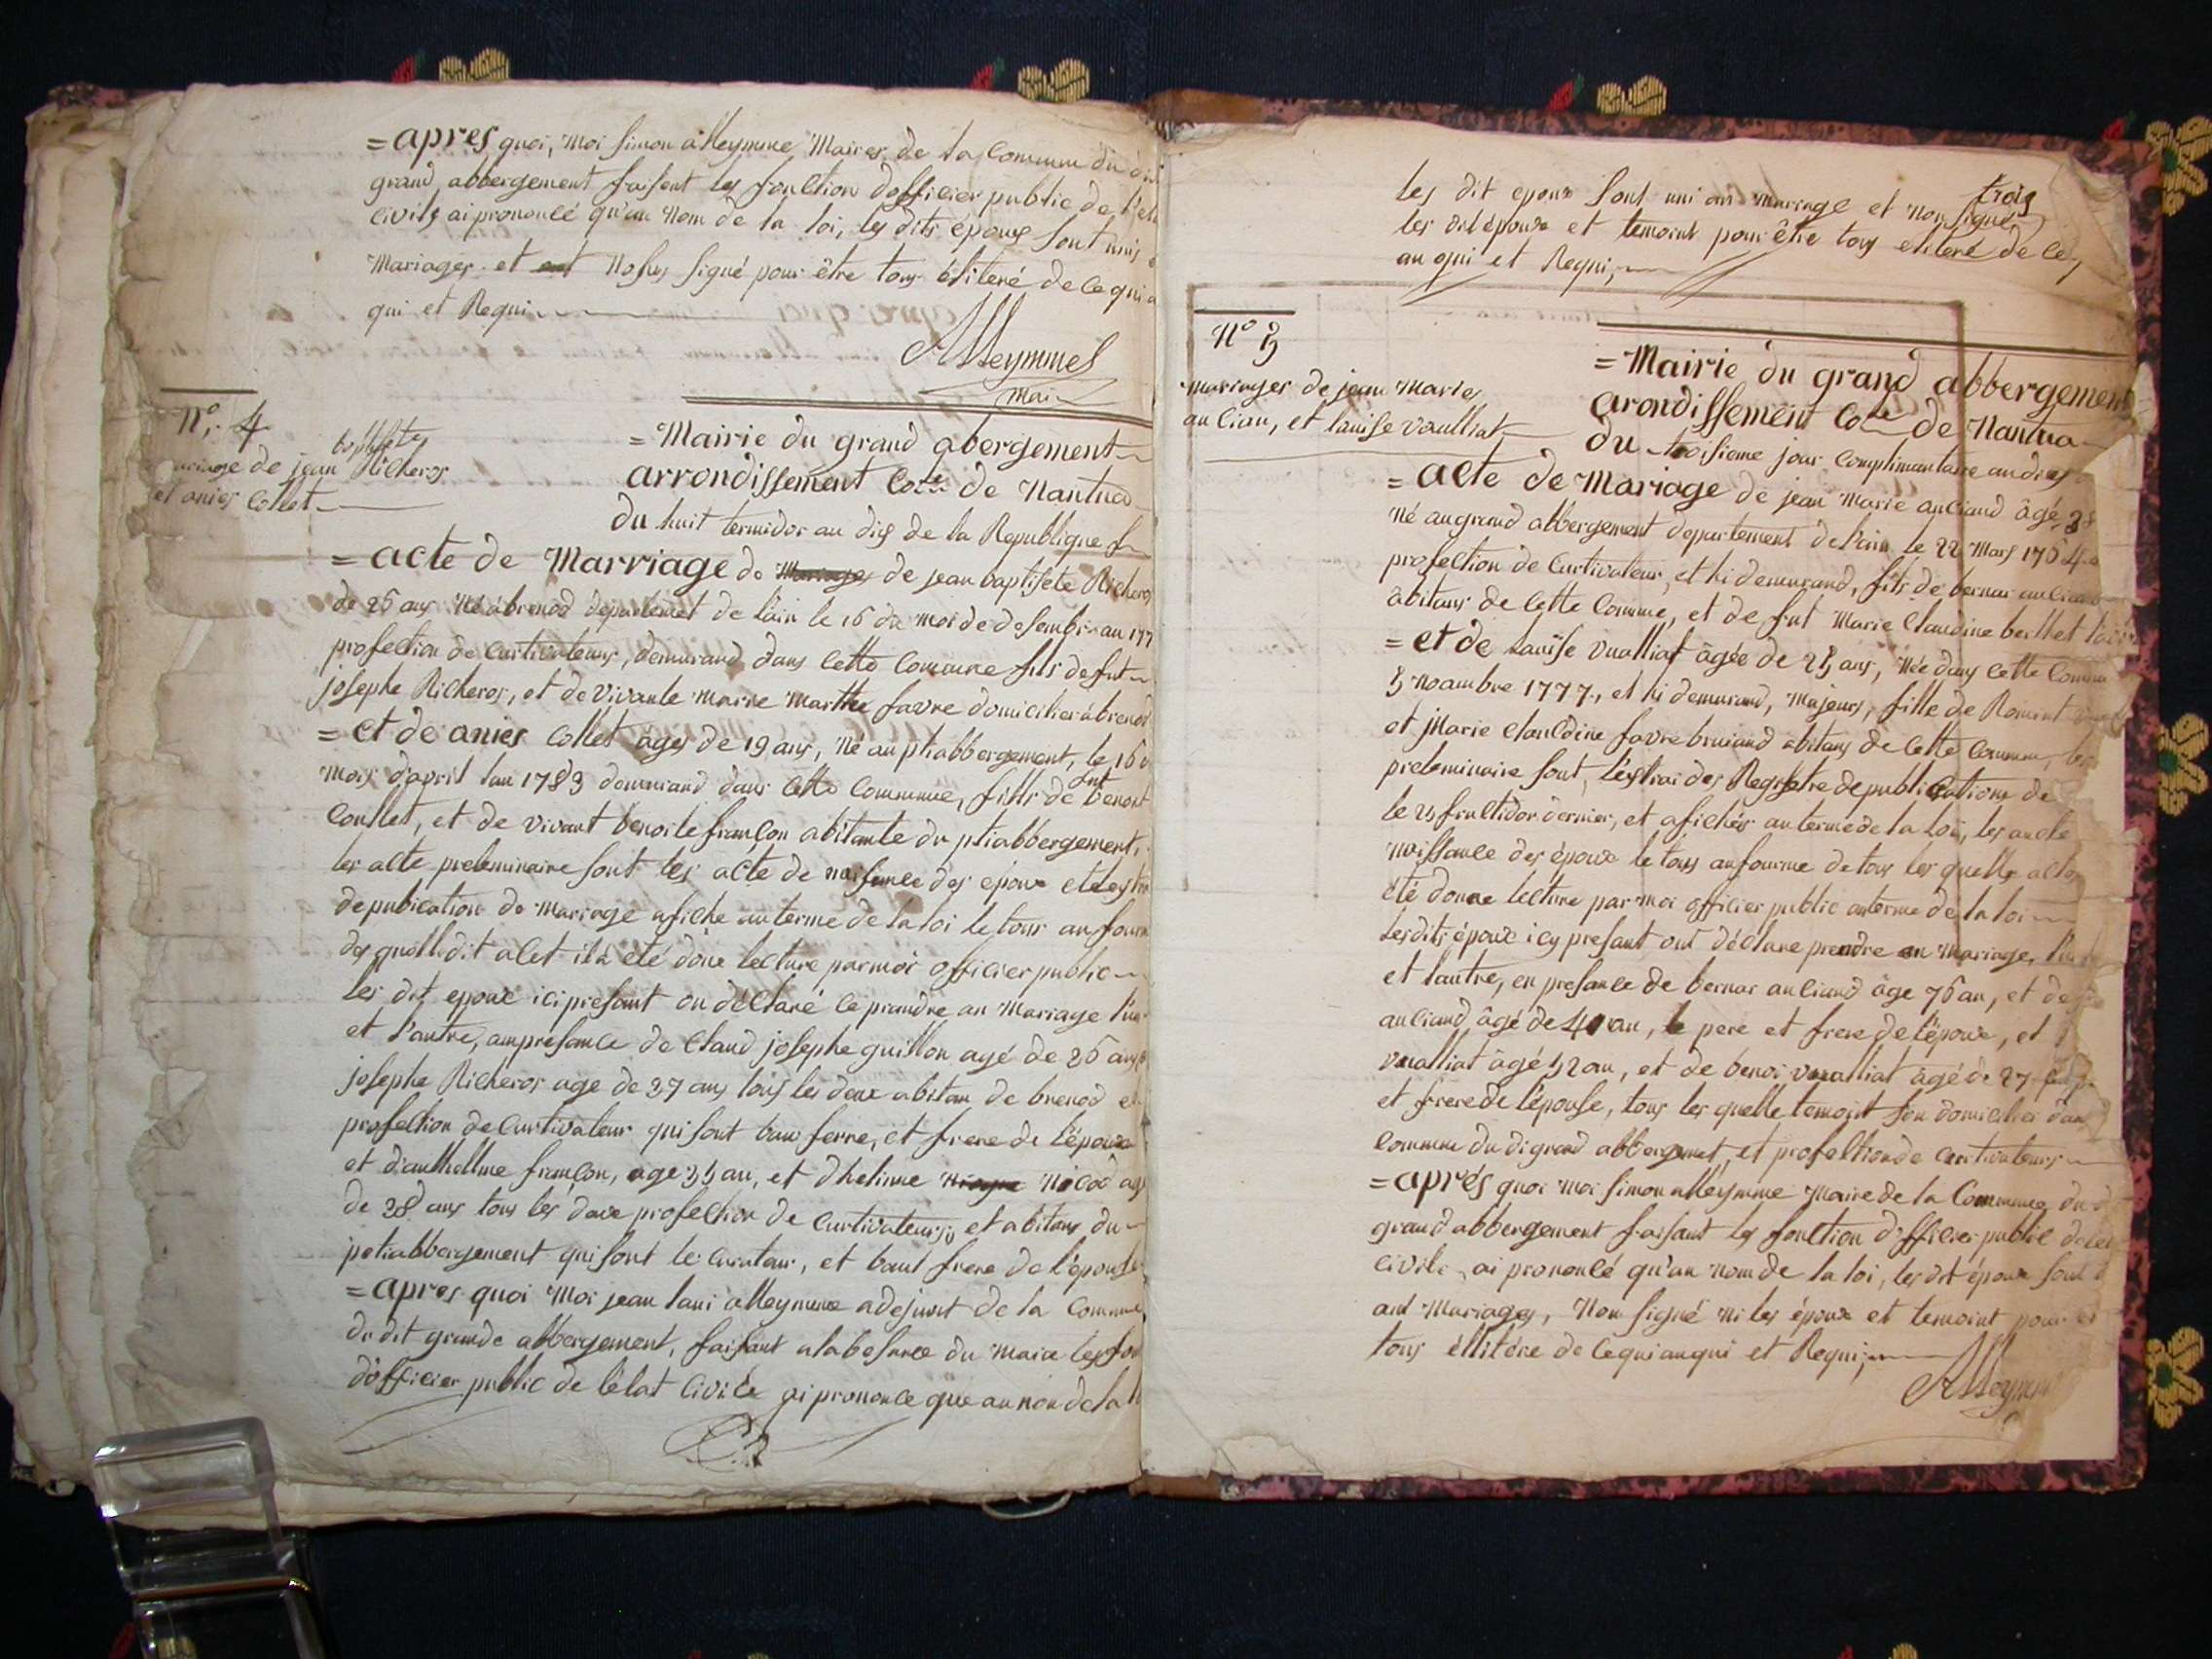 = apres quoi, moi simon alleymme Maires de la Commun du
grand, abbergement faisent les fonction dofficier public de l'
civile, ai prononcé qu'au Nom de la loi, les dits époux sont unis
Mariages. et Nosus signé pour être tous élitené de ce qui
qui et Requi
Alleymmes
mai
N°. 4
baptiste
mariage de jean Richeros
et anies Collet
= Mairie du grand abergement
arrondissement Cotte de Nantua
Du huit termidor an dis de la Republique f
= acte de Marriage de de jean baptisete Richeros
de 26 ans Né à brenod departemet de lain le 16 du moi de desembre an 177
profection de Curtivateurs, demurand dans cette Comunne fils de fut
josephe Richeros, et de vivante Marie Marthe favre domicilier à brenod
= et de anies Collet ages de 19 ans, Né au ptiabbergement, le 16
mois d'april lan 1783 demurand dans cette Commune, fills de fut benoit
Coullet, et de vivant benoite françon abitante du ptiabbergement,
les alte preleminaire sont les acte de naissance des epoux et
de pubication de Mariage afiche au terme de la loi le tous au fourm
des quelledit alet il à été done lecture par moi officier public
les dit epoux ici presant on déclaré ce prandre an Mariage l'un
et l'autre, ampresance de Claud josephe guillon agé de 26 ans
josephe Richeros age de 37 ans tous les deux abitan de brenod et
profection de Curtivateur qui sont bau ferre, et frere de l'époux
et d'anthellme françon, age 35 an, et dhelinne Nicod agé
de 28 ans tous les daux profection de Curtivateurs, et abitans du
petiabbergement qui sont le curateur, et baut frere de l'épouse
= apres quoi Moi jean laui alleymme adejunt de la Commun
du dit grande abbergement, faisant alabesance du maire les fon
dofficier public de l'élat Civile ai prononce que au non de la
trois
les dit epoux sont uni an mariage et non signés
les dit époux et temoint pour être tous eliteré de ce
an qui et Requi,
N° 5
mariages de jean Maries
auciau, et lauise vualliat
= Mairie du grand abbergement
arondissement Cotte de Nantua
du troisieme jour Complimantaire an dies
= alte de Mariage de jean Marie auciand âgé 38
Né au grand abbergement departement de l'ain le 22 Mars 1764
profection de Curtivateur, et hi demurand, fils de bernar auciand
abitans de cette Comune, et de fut Marie Claudine berthet
= et de Lauïse vualliat âgée de 25 ans, Née dans cette Commun
5 noambre 1777, et hi demurand, Majeurs, fille de Romint
et Marie Clauldine favre bruiand abitans de cette Commun, les
preleminaire sont, l'estrai des Registre de publications de
le 25 fructidor dernier, et afichér au terme de la Loi, les acte
naissance des époux le tous an fourme de tous les quelles altes
été donne lecture par moi officier public auterme de la loi
Lesdits époux icy presant ont déclare prendre an Mariage, l'un
et lautre, en presance de bernar auciand âge 76 an, et de
auciand âgé de 40 an, le pere et frere de l'époux, et
vualliat âgé 52 an, et de benoi vualliat âgé de 27
et frere de l'épouse, tous les quelle temoint son domicilier dans
Commun du di grand abbergemet, et profection de curtivateurs
= aprés quoi moi simon alleymme Maire de la Commune du
grand abbergement faisant les fonction d'officier public de
Civile, ai prononcé qu'au nom de la loi, les dit époux sont
ant Mariages, Non signé ni les époux et temoint pour
tous éllitére de ce qui anqui et Requi,
Alleymm